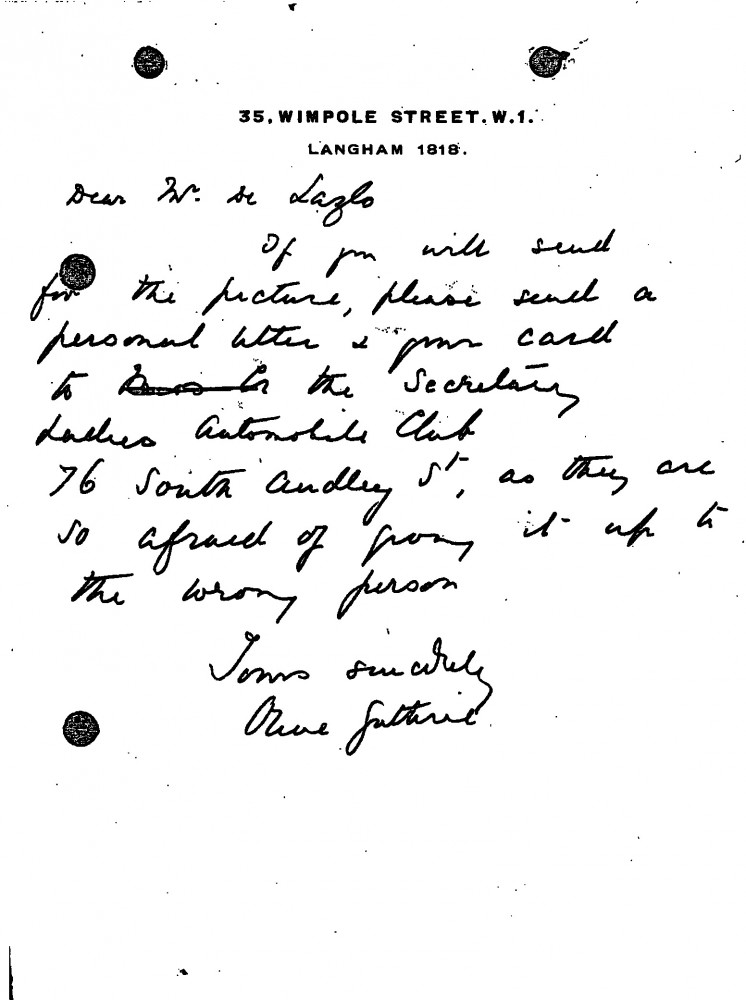 35, WIMPOLE STREET. W.1.
LANGHAM 1818.
Dear Mr. De Lazlo
If you will send
for the picture, please send a
personal letter & your card
to the Secretary
Ladies Automobile Club
76 South Audley St, as they are
so afraid of giving it up to
the wrong person
Yours sincerely
Olive Guthrie